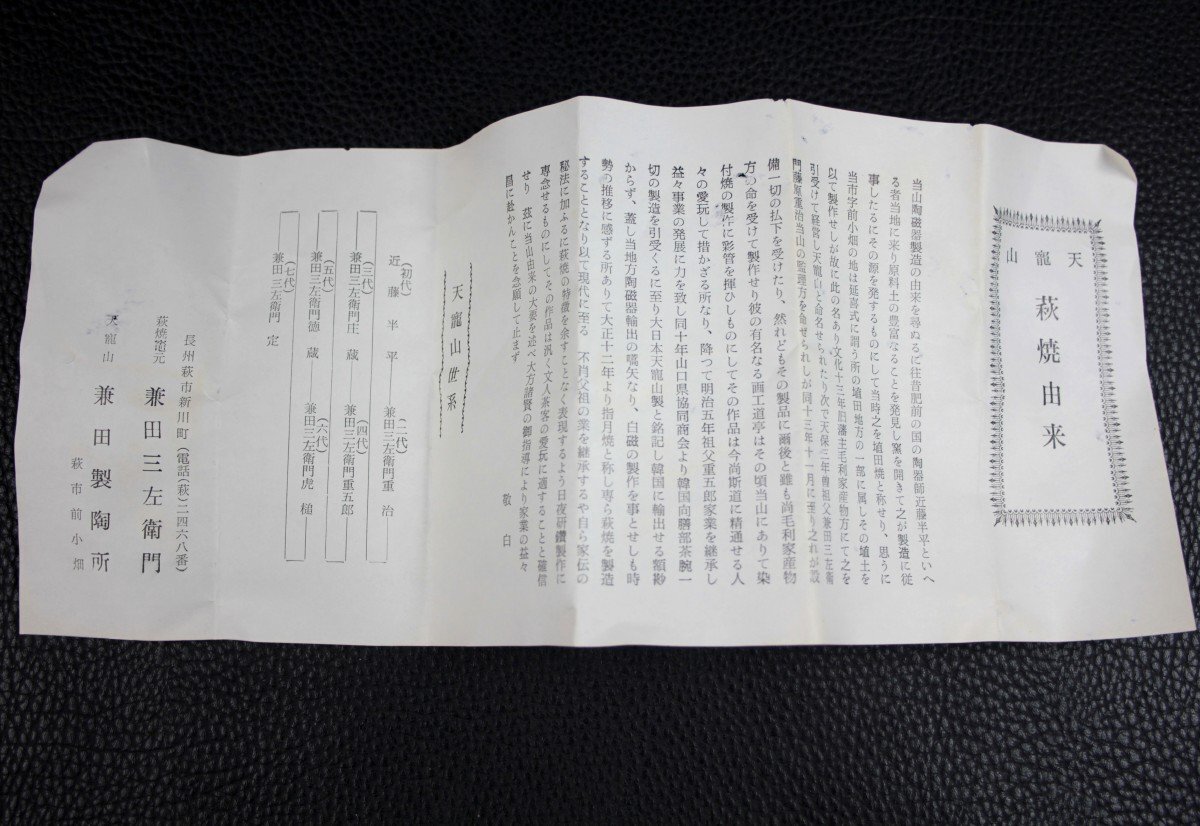 天寵山
萩焼由来
当山陶磁器製造の由来を尋ぬるに往昔肥前の国の陶器師近藤半平といへ
る者当地に来り原料土の豊富なることを発見し窯を開きて之が製造に従
事したるにその源を発するものにして当時之を埴田焼と称せり、思うに
当市字前小畑の地は延喜式に謂う所の埴田地方の一部に属しその埴土を
以て製作せしが故に此の名あり文化十三年旧藩主毛利家産物方にて之を
引受けて経営し天寵山と命名せられたり次で天保三年曽祖父兼田三左衛
門藤原重治当山の監理方を命ぜられしが同十三年十一月に至り之れが設
備一切の払下を受けたり、然れどもその製品に爾後と雖も尚毛利家産物
方の命を受けて製作せり彼の有名なる画工道亭はその頃当山にありて染
付焼の製作に彩管を揮ひしものにしてその作品は今尚斯道に精通せる人
々の愛玩して措かざる所なり、降つて明治五年祖父重五郎家業を継承し
益々事業の発展に力を致し同十年山口県協同商会より韓国向膳部茶腕一
切の製造を引受くるに至り大日本天寵山製と銘記し韓国に輸出せる額尠
からず、蓋し当地方陶磁器輸出の嚆矢なり、白磁の製作を事とせしも時
勢の推移に感ずる所ありて大正十二年より指月焼と称し専ら萩焼を製造
することとなり以て現代に至る 不肖父祖の業を継承するや自ら家伝の
秘法に加ふるに萩焼の特徴を余すことなく表現するよう日夜研鑽製作に
専念せるものにしてその作品は汎く文人茶客の愛玩に適することと確信
せり 茲に当山由来の大要を述べ大方諸賢の御指導により家業の益々
固に赴かんことを念願して止まず
敬白
天寵山世系
(初代)
近藤半平
(二代)
兼田三左衛門重治
(三代)
兼田三左衛門庄蔵
(四代)
兼田三左衛門重五郎
(五代)
兼田三左衛門徳蔵
(六代)
兼田三左衛門虎槌
(七代)
兼田三左衛門定
長州萩市新川町(電話(萩)二四六八番)
萩焼窯元 兼田三左衛門
天寵山 兼田製陶所
萩市前小畑